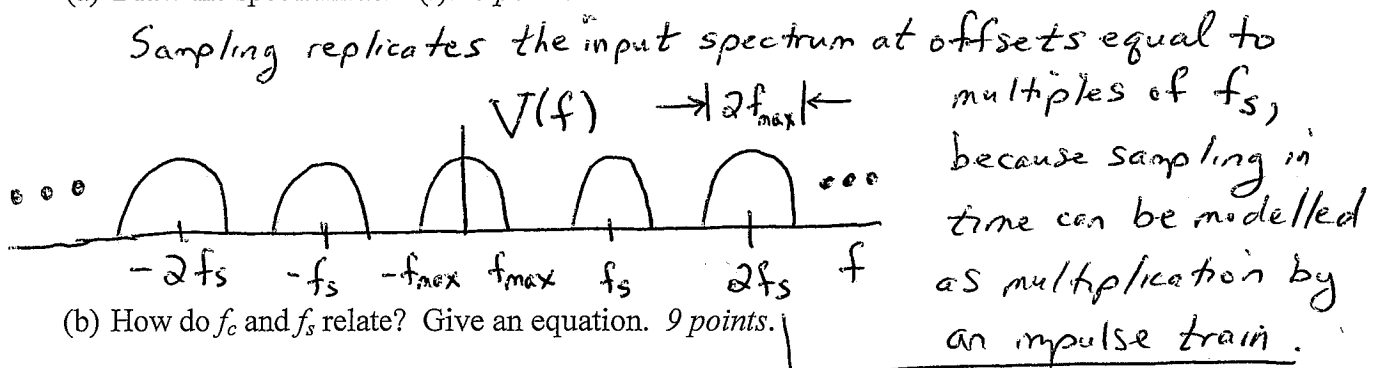 Sampling replicates the input spectrum at offsets equal to
multiples of fs,
because sampling in
time can be modelled
as multiplication by
an impulse train.
V(f) →|2fmax|←
••• •••
-2fs -fs -fmax fmax fs 2fs f
(b) How do fc and fs relate? Give an equation. 9 points.